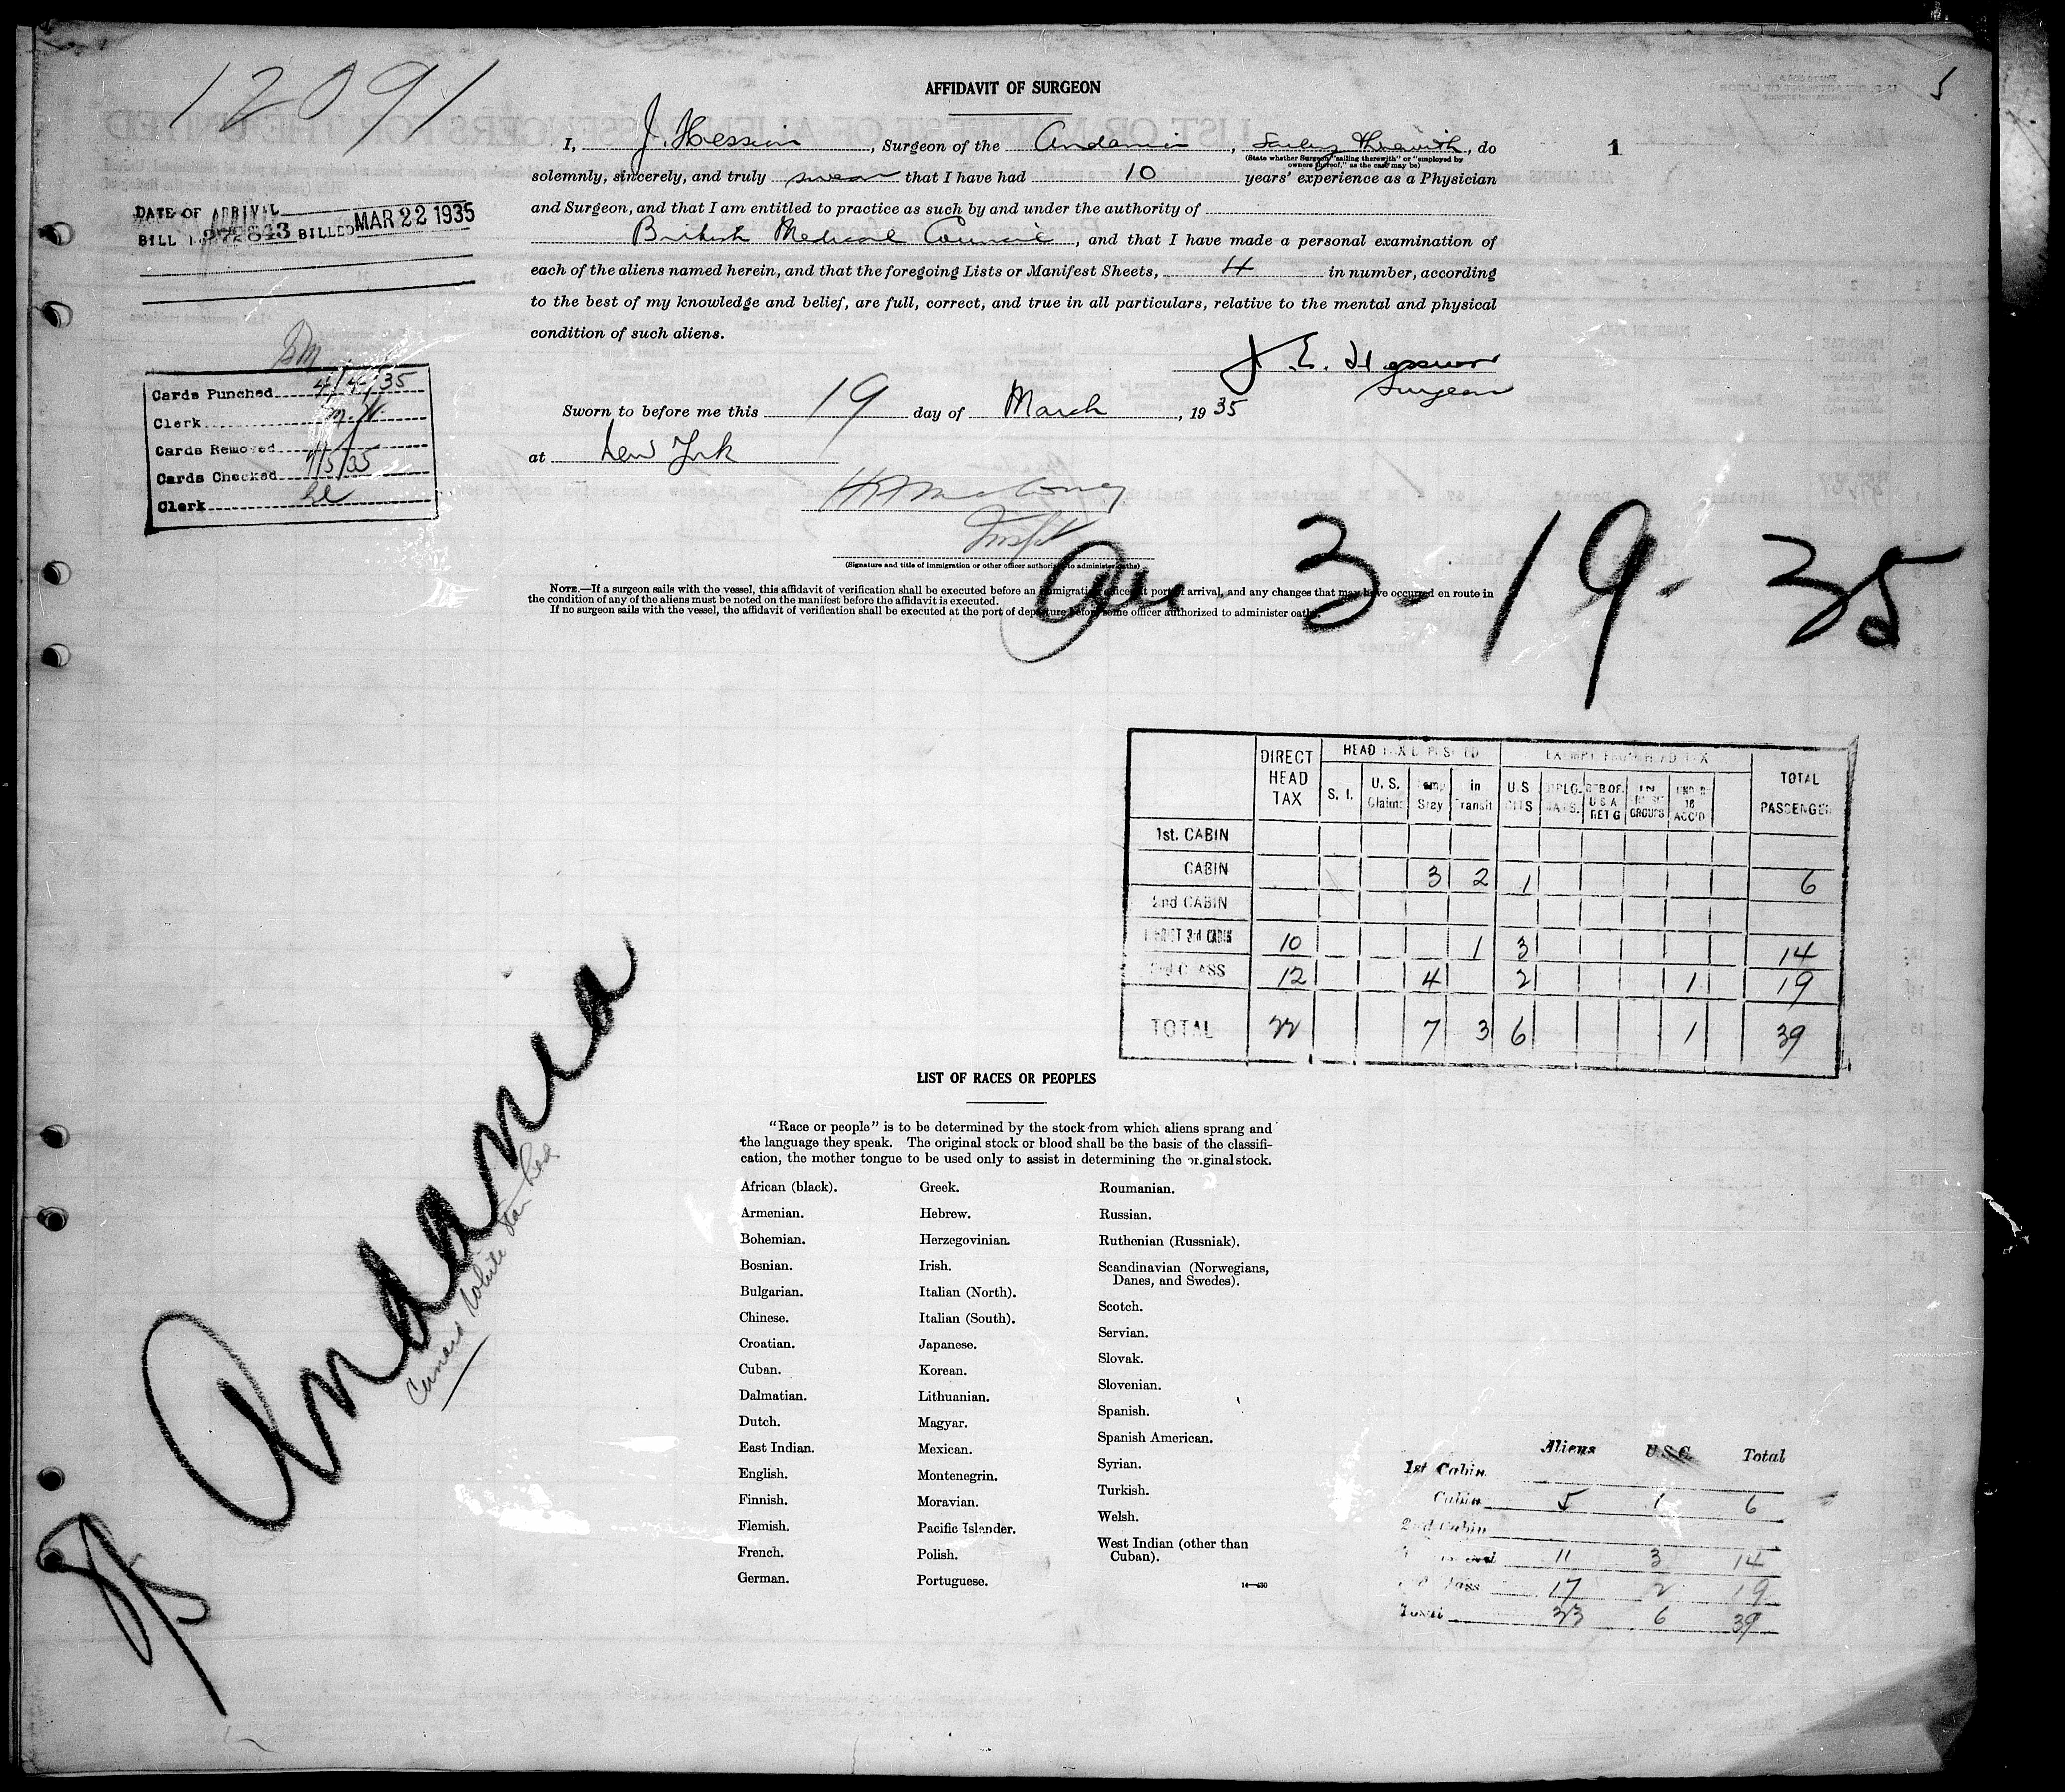 12091
AFFIDAVIT OF SURGEON
1
I, J. Hession, Surgeon of the Andania, Sailing Therewith, do
(State whether Surgeon "sailing therewith" or "employed by
owners thereof," as the case may be)
solemnly, sincerely, and truly swear that I have had 10 years' experience as a Physician
and Surgeon, and that I am entitled to practice as such by and under the authority of
British Medical Council, and that I have made a personal examination of
each of the aliens named herein, and that the foregoing Lists or Manifest Sheets, 4 in number, according
to the best of my knowledge and belief, are full, correct, and true in all particulars, relative to the mental and physical
condition of such aliens.
J. E. Hession
Surgeon
Sworn to before me this 19 day of March, 1935
at New York
Inspt
(Signature and title of immigration or other officer authorized to administer oaths)
NOTE.—If a surgeon sails with the vessel, this affidavit of verification shall be executed before an immigration officer at port of arrival, and any changes that may have occurred en route in
the condition of any of the aliens must be noted on the manifest before the affidavit is executed.
If no surgeon sails with the vessel, the affidavit of verification shall be executed at the port of departure before some officer authorized to administer oaths.
DATE OF ARRIVAL
BILL BILLED MAR 22 1935
Cards Punched 4/4/35
Clerk M.H.
Cards Removed
Cards Checked 4/5/35
Clerk
3-19-35
DIRECT HEAD TAX
S. I.
U. S. Claims
Temp Stay
In Transit
EXEMPT FROM HEAD TAX
U.S CITS
DIPLO-MATS.
IN TRANSIT GROUPS
UNDER 16 ACC'D
TOTAL PASSENGER
1st. CABIN
CABIN 3 2 1 6
2nd CABIN
TOURIST 3rd CABIN 10 1 3 14
3rd CLASS 12 4 2 1 19
TOTAL 22 7 3 6 1 39
Andania
Cunard White Star Line
LIST OF RACES OR PEOPLES
"Race or people" is to be determined by the stock from which aliens sprang and
the language they speak. The original stock or blood shall be the basis of the classifi-
cation, the mother tongue to be used only to assist in determining the original stock.
African (black).
Armenian.
Bohemian.
Bosnian.
Bulgarian.
Chinese.
Croatian.
Cuban.
Dalmatian.
Dutch.
East Indian.
English.
Finnish.
Flemish.
French.
German.
Greek.
Hebrew.
Herzegovinian.
Irish.
Italian (North).
Italian (South).
Japanese.
Korean.
Lithuanian.
Magyar.
Mexican.
Montenegrin.
Moravian.
Pacific Islander.
Polish.
Portuguese.
Roumanian.
Russian.
Ruthenian (Russniak).
Scandinavian (Norwegians,
Danes, and Swedes).
Scotch.
Servian.
Slovak.
Slovenian.
Spanish.
Spanish American.
Syrian.
Turkish.
Welsh.
West Indian (other than
Cuban).
Aliens U.S.C. Total
1st Cabin
Cabin 5 1 6
2nd Cabin
11 3 14
17 2 19
Total 33 6 39